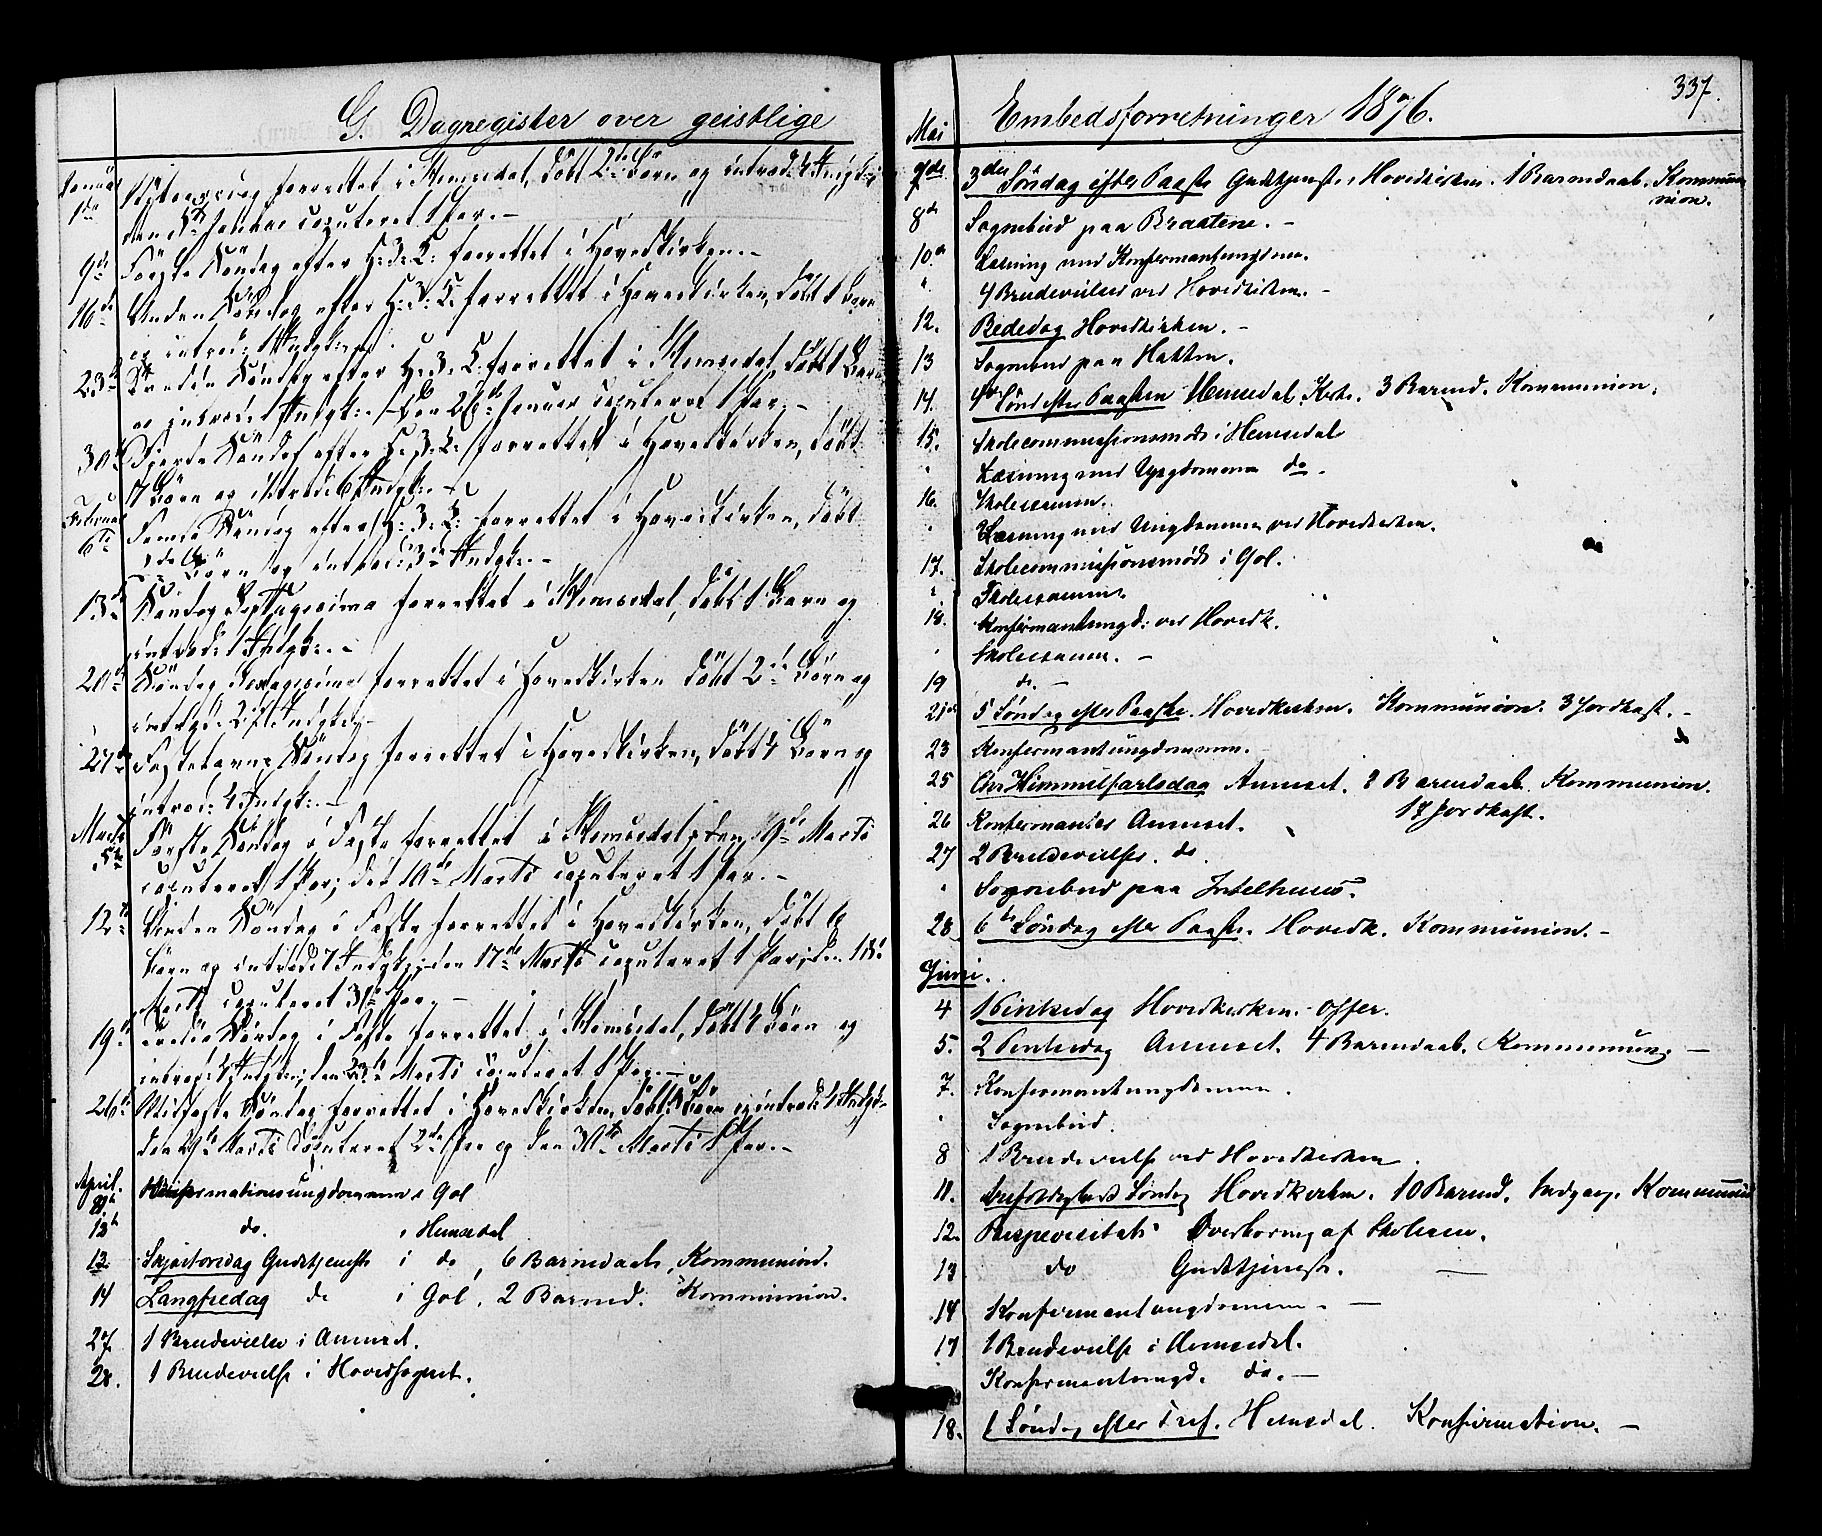 G. Dagregister over geistlige
Januar
1ste forrettet i Hemsedal, döbt 2de Börn og introd:
den 5te Januar copuleret 1 Par. -
9de Förste Söndag efter H: 3: K: forrettet i Hovedkirken. -
16de Anden Söndag efter H: 3: K: forrettet i Hovedkirken, döbt 1 Barn
og introd: 1
23de Tredie Söndag efter H: 3: K: forrettet i Hemsedal, döbt 1 Barn
og introd: 1 den 26de Januar copuleret 1 Par. -
30te Fjerde Söndag efter H: 3: K: forrettet i Hovedkirken, döbt
Börn og introd: 6
Februar
6te Femte Söndag efter H: 3: K: forrettet i Hovedkirken, döbt
Börn og introd: 3de
13de Söndag Septuagesima forrettet i Hemsedal, döbt 1 Barn og
introd: 1
20de Söndag Sexagesima forrettet i Hovedkirken döbt 2de Börn og
27de Fastelavns Söndag forrettet i Hovedkirken, döbt 4 Börn og
introd: 4
Marts
5te Förste Söndag i Faste forrettet i Hemsedal; den 9de Marts
copuleret 1 Par; den 10de Marts copuleret 1 Par. -
12te Anden Söndag i Faste forrettet i Hovedkirken, döbt 6
Börn og introd: 7 den 17de Marts copuleret 1 Par; den 18de
Marts copuleret 3de Par. -
19de Tredie Söndag i Faste forrettet i Hemsedal, döbt 4 Börn og
introd: Marts copuleret 1 Par. -
26de Midfaste Söndag forrettet i Hovedkirken, döbt Börn og introd:
den 29de Marts copuleret 2de Par og den 30te Marts 1 Par. -
April.
Konfirmationsungdommen i Gol
12te do. i Hemsedal
13. Skjærtorsdag Gudstjeneste i do, 6 Barnedaab, Kommunion.
14 Langfredag do i Gol. 2 Barned. Kommunion.
27. 1 Brudevielse i Aamot.
28. 1 Brudevielse i Hovedsognet.
337.
Embedsforretninger 1876.
Mai
7de 3die Söndag efter Paaske Gudstjeneste i Hovedkirken. 1 Barnedaab. Kommunion.
8de Sognebud paa Braatene. -
10de Læsning med Konfirmantungdom.
" 4 Brudevielser ved Hovedkirken. -
12. Bededag Hovedkirken. -
13 Sognebud paa Hatten.
14. 4de Sönd. efter Paasken Hemsedal Kirke. 3 Barned. Kommunion.
15. Skolecommissionsmöde i Hemsedal
" Læsning med Ungdommen do.
16. Skoleexamen.
" Læsning med Ungdommen ved Hovedkirken.
17. Skolecommissionsmöde i Gol.
" Skoleexamen.
18. Konfirmantungd: ved Hovedk.
" Skoleexam. -
19 do. -
21de 5 Söndag efter Paaske. Hovedkirken. Kommunion. 3 Jordkast. -
23 Konfirmantungdommen.
25 Chr. Himmelfartsdag Aamot. 8 Barnedaab. Kommunion.
17 Jordkast.
26 Konfirmanter Aamot.
27 2 Brudevielser. do.
" Sognebud paa
28. 6te Söndag efter Paaske. Hovedk. Kommunion. -
Juni.
4 1 Pintsedag Hovedkirken. - Offer.
5. 2 Pintsedag Aamot. 4 Barnedaab. Kommunion. -
7. Konfirmantungdommen.
" Sognebud.
8 1 Brudevielse ved Hovedkirken.
11. Trefoldigheds Söndag Hovedkirken. 10 Barned. Indgang. Kommunion
12. Bispevisitats Overhöring af Skolerne.
13 do Gudstjeneste. -
14 Konfirmantungdommen. -
17 1 Brudevielse i Hemsedal.
Konfirmantungd. do. -
18. 1 Söndag efter Tref. Hemsedal. Konfirmation. -